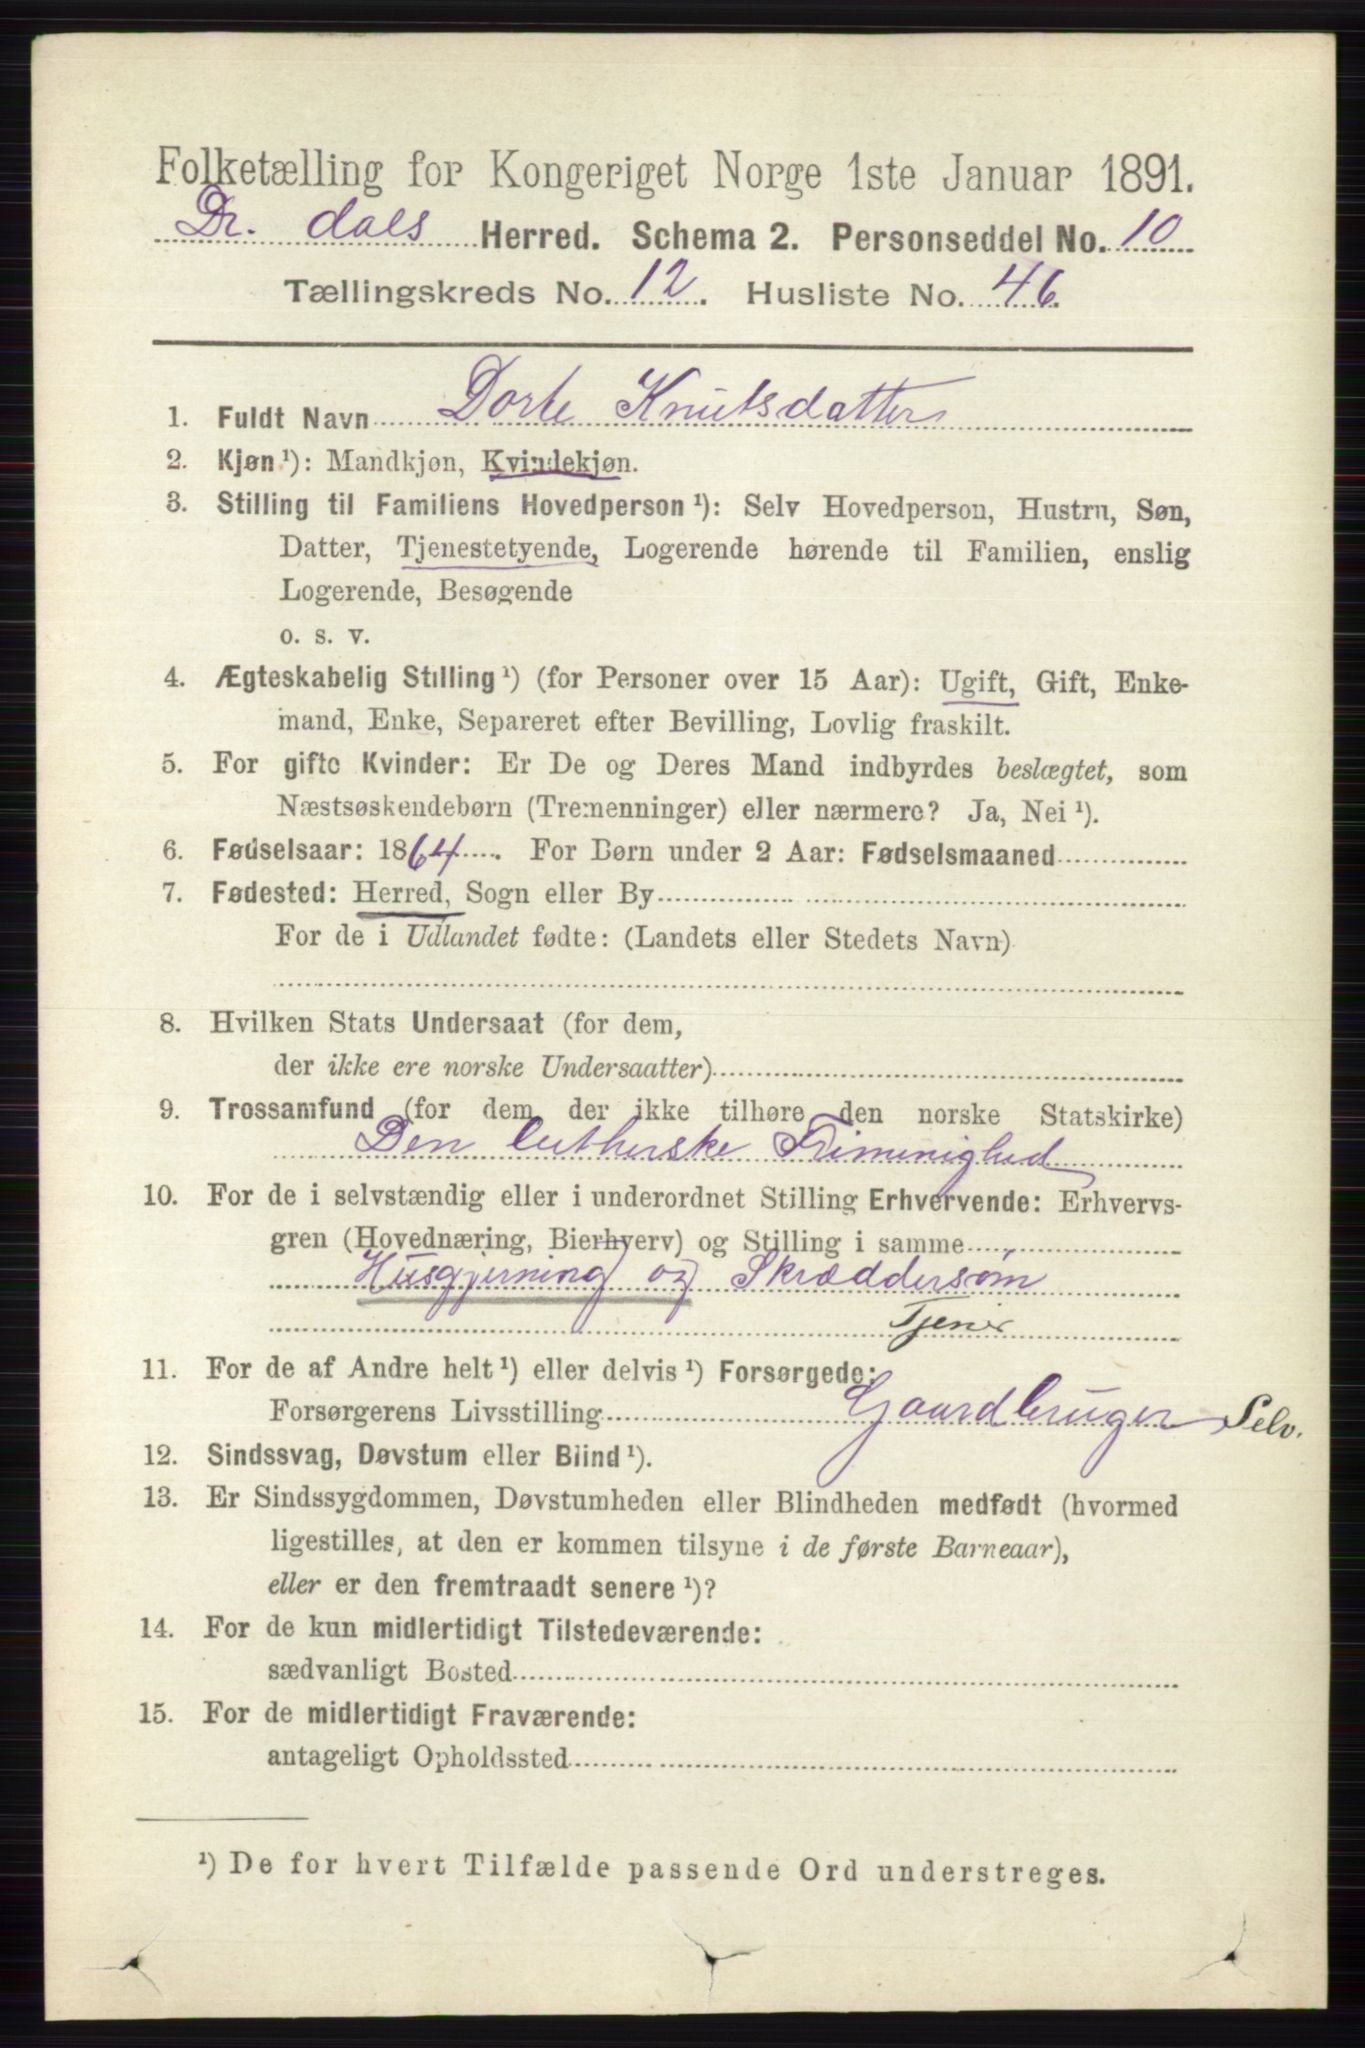 Folketælling for Kongeriget Norge 1ste Januar 1891.
Dr. dals Herred. Schema 2. Personseddel No. 10
Tællingskreds No. 12. Husliste No. 46.
1. Fuldt Navn Dorte Knutsdatter
2. Kjøn ¹): Mandkjøn, Kvindekjøn.
3. Stilling til Familiens Hovedperson ¹): Selv Hovedperson, Hustru, Søn,
Datter, Tjenestetyende, Logerende hørende til Familien, enslig
Logerende, Besøgende
o. s. v.
4. Ægteskabelig Stilling ¹) (for Personer over 15 Aar): Ugift, Gift, Enke-
mand, Enke, Separeret efter Bevilling, Lovlig fraskilt.
5. For gifte Kvinder: Er De og Deres Mand indbyrdes beslægtet, som
Næstsøskendebørn (Tremenninger) eller nærmere? Ja, Nei ¹).
6. Fødselsaar: 1864. For Børn under 2 Aar: Fødselsmaaned
7. Fødested: Herred, Sogn eller By
For de i Udlandet fødte: (Landets eller Stedets Navn)
8. Hvilken Stats Undersaat (for dem,
der ikke ere norske Undersaatter)
9. Trossamfund (for dem der ikke tilhøre den norske Statskirke)
Den lutherske Frimenighed
10. For de i selvstændig eller i underordnet Stilling Erhvervende: Erhvervs-
gren (Hovednæring, Bierhverv) og Stilling i samme
Husgjerning og Skræddersøm
Tjener
11. For de af Andre helt ¹) eller delvis ¹) Forsørgede:
Forsørgerens Livsstilling Gaardbruger Selv.
12. Sindssvag, Døvstum eller Blind ¹).
13. Er Sindssygdommen, Døvstumheden eller Blindheden medfødt (hvormed
ligestilles, at den er kommen tilsyne i de første Barneaar),
eller er den fremtraadt senere ¹)?
14. For de kun midlertidigt Tilstedeværende:
sædvanligt Bosted
15. For de midlertidigt Fraværende:
antageligt Opholdssted
¹) De for hvert Tilfælde passende Ord understreges.